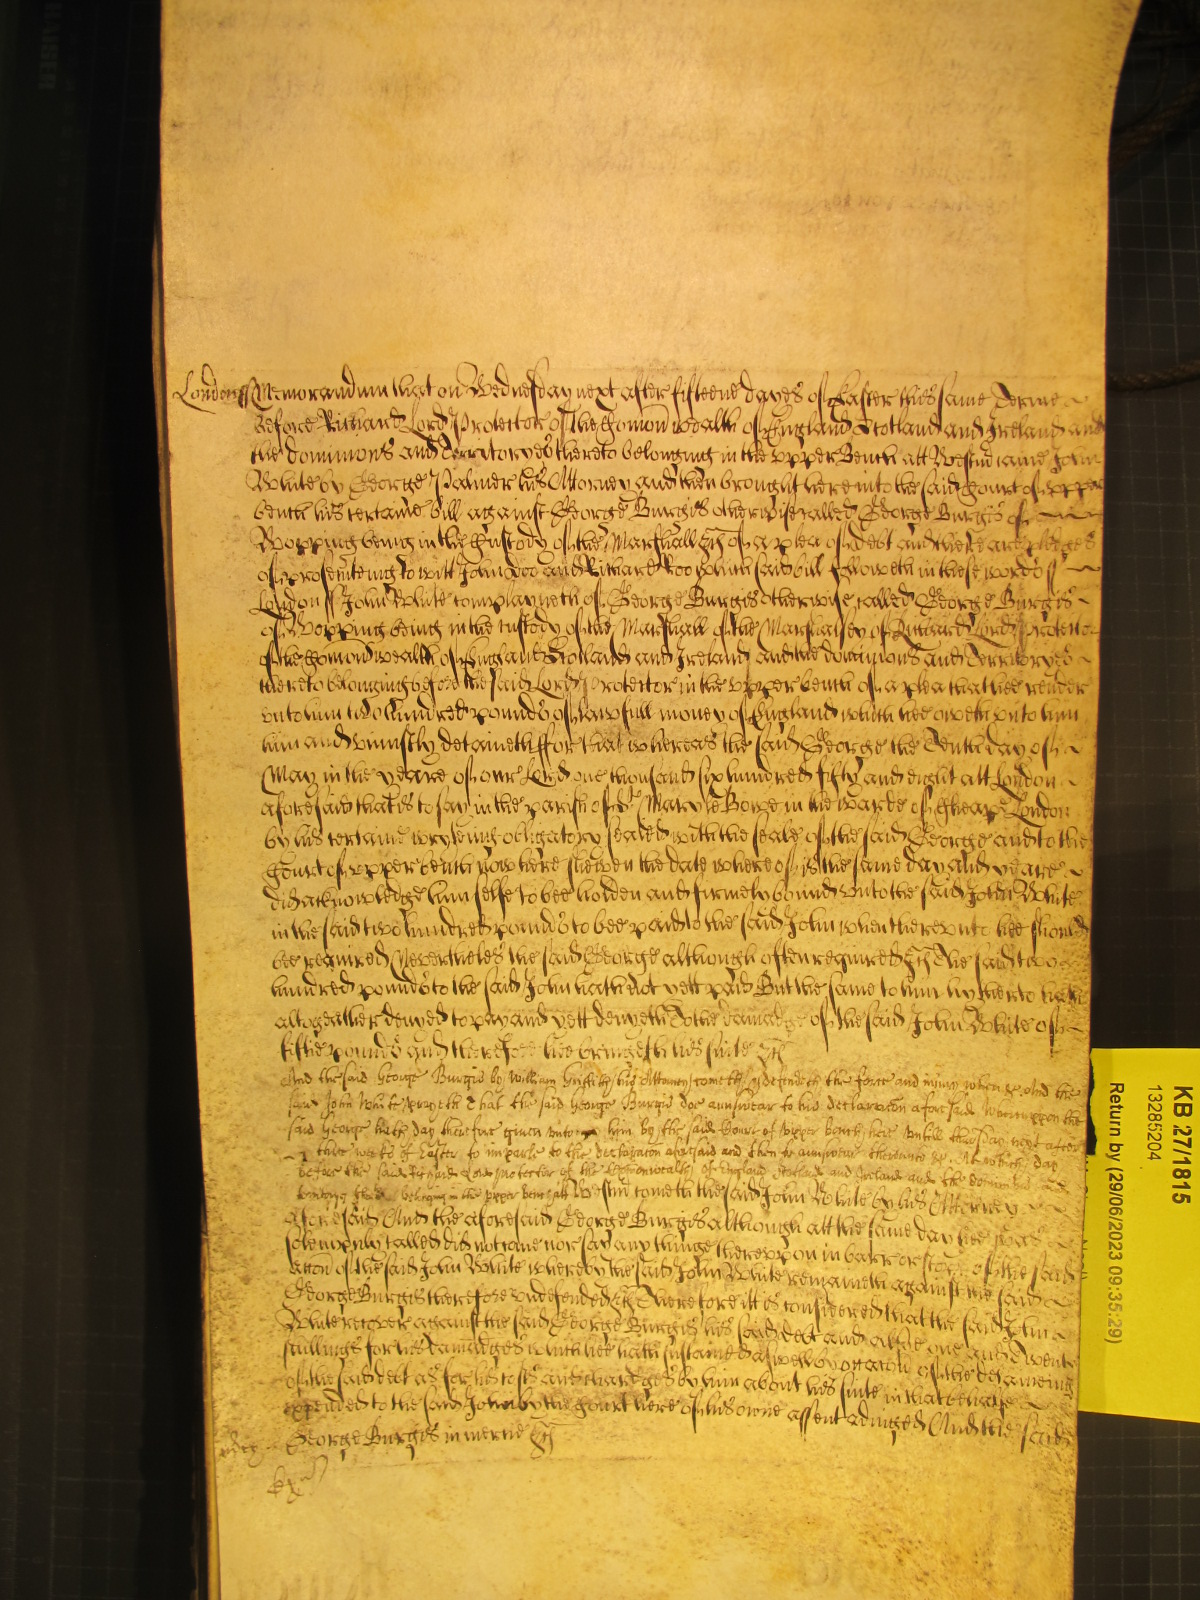 London ss Memorandum that on Wednesday next after fifteene dayes of Easter this same Terme
before Richard Lord Protector of the Comon wealth of England Scotland and Ireland and
the dominions and Territoryes thereto belonging in the upper Bench att Westm came John
White by George Palmer his Attorney and then brought here into the said Court of upper
bench his certaine bill against George Burgis otherwise called George Burgis of
Wopping being in the Custody of the Marshall &c of a plea of debt and there are pledges
of prosecuteing to witt John Doo and Richard Roo which said bill followeth in these words ss
London ss John White complayneth of George Burgis otherwise called George Burgis
of Wopping being in the custody of the Marshall of the Marshalsey of Richard Lord Protector
of the Comon wealth of England Scotland and Ireland and the dominions and Territoryes
thereto belonging before the said Lord Protector in the upper bench of a plea that hee render
unto him two hundred pounds of lawfull money of England which hee oweth unto him
him and uniustly detaineth ffor that whereas the said George the Tenth day of
May in the yeare of our Lord one thousand six hundred fifty and eight att London
aforesaid that is to say in the parish of St Mary le Bowe in the warde of Cheape London
by his certaine wryteing obligatory sealed with the seale of the said George and to the
Court of upper bench now here shewen the date whereof is the same day and yeare
did acknowledge him selfe to bee holden and firmely bound unto the said John White
in the said two hundred pounds to bee paid to the said John when thereunto hee should
bee required Neverthelesse the said George although often required &c The said two
hundred pounds to the said John hath not yett paid But the same to him hitherto hath
altogeather denyed to pay and yett denyeth To the damadge of the said John White of
fiftie pounds And therefore hee bringeth his suite &c
And the said George Burgis by William Griffith his Attorney cometh & defendeth the force and iniury when &c And the
said John White prayeth that the said George Burgis doe aunswear to his declaration aforesaid Whereuppon the
said George hath day therefore given unto him by the said Court of upper bench here untill thursday next after
three weeks of Easter to imparle to the declaration aforesaid and then to aunswere thereunto &c At which day
before the said Richard Lord Protector of the Commonwealth of England Scotland and Ireland and the dominions and
belonging in the upper bench att Westm cometh the said John White by his Attorney
aforesaid And the aforesaid George Burgis although att the same day hee was
solempnly called did not come nor say any thinge thereuppon in barr or stopp of the said
accon of the said John White whereby the said John White remaineth against the said
George Burgis therefore undefended &c Therefore itt is considered that the said John
White recover against the said George Burgis his said debt and alsoe one and Twenty
shillings for his damadges which hee hath sustained aswell by occasion of the detaineing
of the said debt as for his costs and chardges by him about his suite in that behalfe
expended to the said John by the Court here of his owne assent adiudged And the said
George Burgis in mercie &c